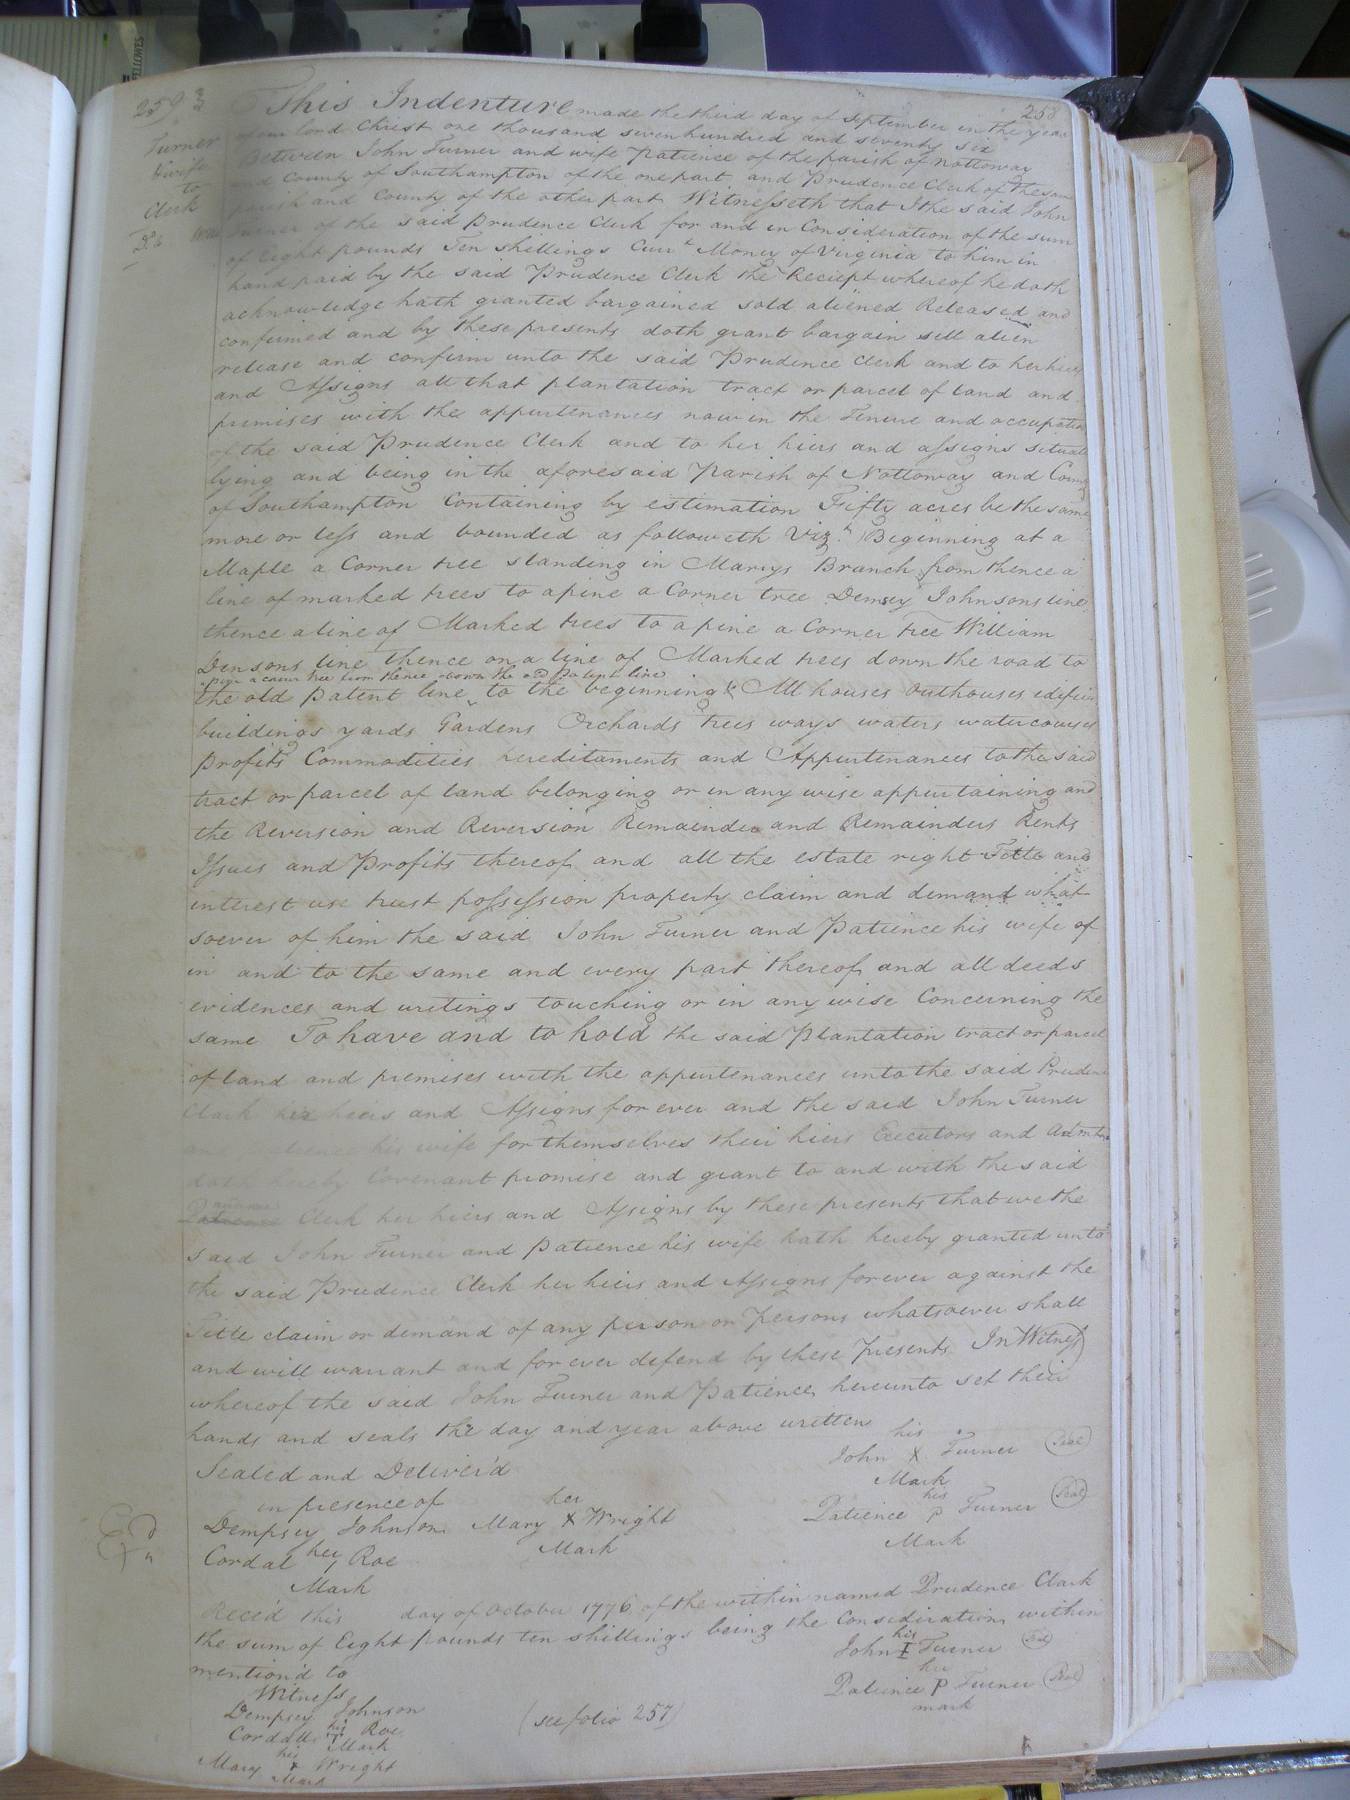 259
258
Turner
& wife
to
Clerk
Do
This Indenture made the third day of September in the year
of our lord Christ one thousand seven hundred and seventy six
Between John Turner and wife Patience of the parish of Nottoway
and County of Southampton of the one part and Prudence Clerk of the Sam
parish and County of the other part Witnesseth that I the said John
Turner of the said Prudence Clerk for and in Consideration of the sum
of Eight pounds Ten shillings Curr.t Money of Virginia to him in
hand paid by the said Prudence Clerk the Reciept whereof he doth
acknowledge hath granted bargained sold aliened Released and
confirmed and by these presents doth grant bargain sell alien
release and confirm unto the said Prudence Clerk and to her heirs
and Assigns all that plantation tract or parcel of land and
premises with the appurtenances now in the Tenure and occupation
of the said Prudence Clerk and to her hiers and assigns situate
lying and being in the aforesaid Parish of Nottoway and County
of Southampton Containing by estimation Fifty acres be the same
more or less and bounded as followeth Viz.t Beginning at a
Maple a Corner tree standing in Marys Branch from thence a
line of marked trees to a pine a Corner tree Demsey Johnsons line
thence a line of Marked trees to a pine a Corner tree William
Densons line thence on a line of Marked trees down the road to
a pine a corner tree from thence down the old patent line
the old patent line to the beginning & All houses outhouses edifices
buildings yards Gardens Orchards trees ways waters watercourses
profits Commodities hereditaments and Appurtenances to the said
tract or parcel of land belonging or in any wise appurtaining and
the Reversion and Reversion Remainder and Remainders Rents
Issues and Profits thereof and all the estate right Title and
interest use trust possession property claim and demand what
soever of him the said John Turner and Patience his wife of
in and to the same and every part thereof and all deeds
evidences and writings touching or in any wise Concerning the
same To have and to hold the said Plantation tract or parcel
of land and premises with the appurtenances unto the said Prudence
Clark her heirs and Assigns for ever and the said John Turner
and Patience his wife for themselves their hiers Executors and Admtrs
doth hereby Covenant promise and grant to and with the said
Patience Clerk her hiers and Assigns by these presents that we the
said John Turner and Patience his wife hath hereby granted unto
the said Prudence Clerk her hiers and Assigns forever against the
Title claim or demand of any person or Persons whatsoever shall
and will warrant and for ever defend by these Presents In Witness
whereof the said John Turner and Patience hereunto set their
hands and seals the day and year above written
his
John X Turner Seal
Mark
Sealed and Deliver'd
in presence of
his
Patience P Turner Seal
Mark
her
Dempsey Johnson Mary X Wright
Mark
her
Cordal Roe
Mark
Ex.d
Reced this day of October 1776 of the within named Prudence Clark
the sum of Eight pounds ten shillings being the Consideration within
mention'd to
his
John I Turner Seal
her
Patience P Turner Seal
mark
Witness
Dempsey Johnson
his
Cordall Roe
Mark
his
Mary X Wright
Mark
(see folio 257)